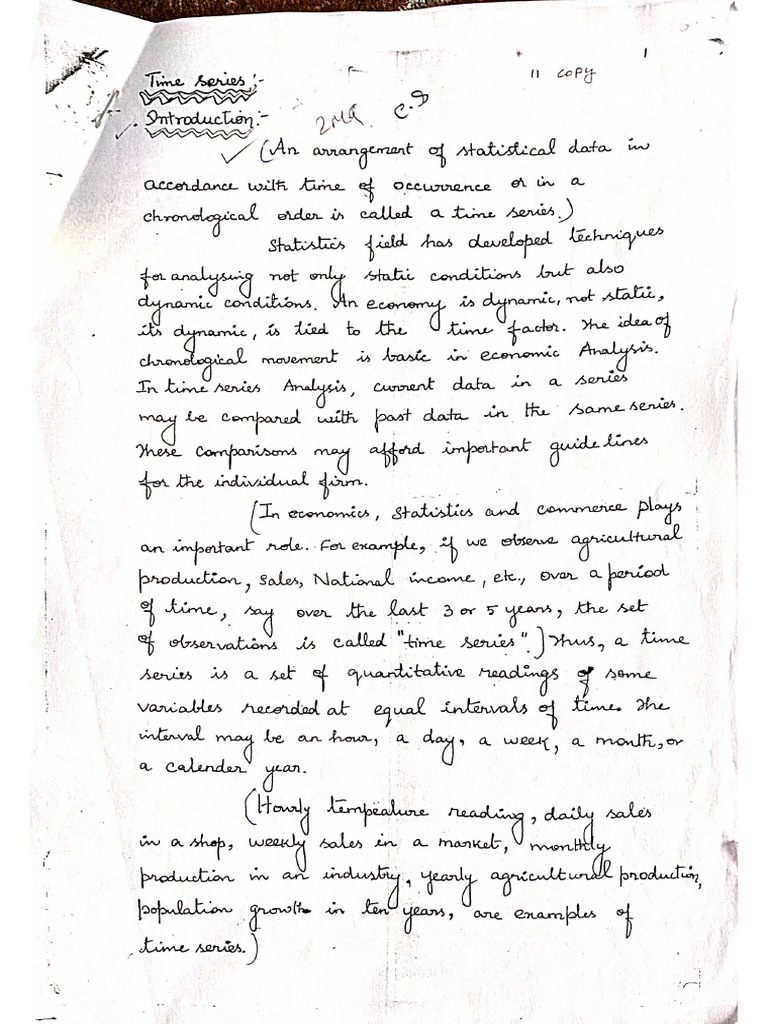 1
11 copy
Time series:-
Introduction:-
2MQ
(An arrangement of statistical data in
accordance with time of occurrence or in a
chronological order is called a time series.)
Statistics field has developed techniques
for analysing not only static conditions but also
dynamic conditions. An economy is dynamic, not static,
its dynamic, is tied to the time factor. The idea of
chronological movement is basic in economic Analysis.
In time series Analysis, current data in a series
may be compared with past data in the same series.
These comparisons may afford important guide lines
for the individual firm.
(In economics, statistics and commerce plays
an important role. For example, if we observe agricultural
production, sales, National income, etc., over a period
of time, say over the last 3 or 5 years, the set
of observations is called "time series".) Thus, a time
series is a set of quantitative readings of some
variables recorded at equal intervals of time. The
interval may be an hour, a day, a week, a month, or
a calender year.
(Hourly tempeature reading, daily sales
in a shop, weekly sales in a market, monthly
production in an industry, yearly agricultural production,
population growth in ten years, are examples of
time series.)